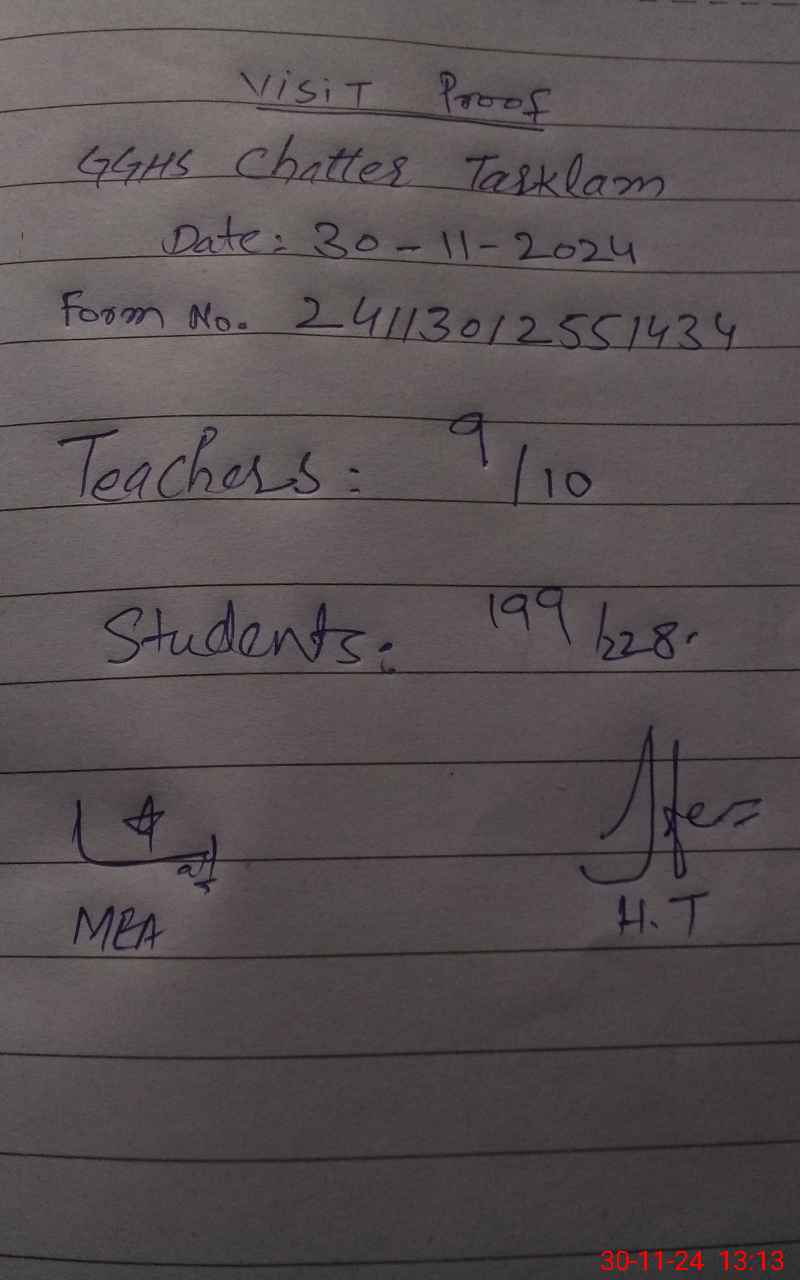 Visit Proof
GGHS Chatter Tasklam
Date: 30-11-2024
Form No. 24113012551434
Teachers: 9/10
Students: 199/228.
MEA
H.T
30-11-24 13:13